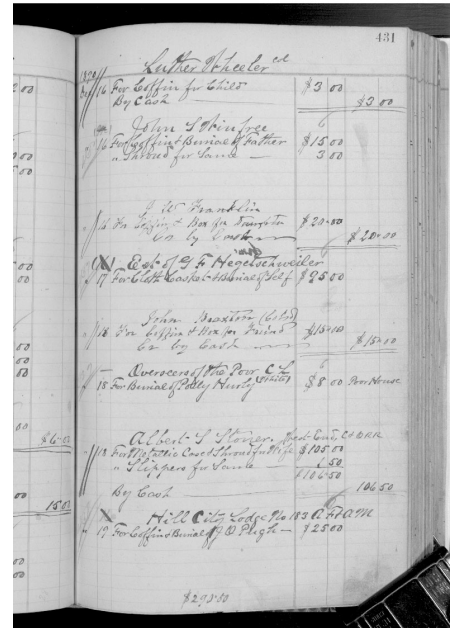 431
Luther Wheeler col
1890
Dec 16 For Coffin for Child $3 00
By Cash $3 00
John S Winfree
" 16 For Coffin & Burial of Father $15 00
" Shroud for Same — 3 00
J W Franklin
" 16 For Coffin & Box for Daughter $20.00
Cr by Cash $20.00
(X) Est of G. F. Hegelschweiler
" 17 For Cloth Casket & Burial of Self $95 00
John Braxton (Cold)
" 18 For Coffin & Box for Friend $15.00
Cr by Cash $15.00
Overseers of the Poor C L
" 18 For Burial of Polly Hurly (White) $8 00 Poor House
Albert S Stoner. West End,
" 18 For Metallic Case & Shroud for Wife $105 00
" Slippers for Same — 1 50
$106.50
By Cash — 106 50
X Hill City Lodge No 183 A F & A M
" 19 For Coffin & Burial of J O Pugh — $25 00
$293.50